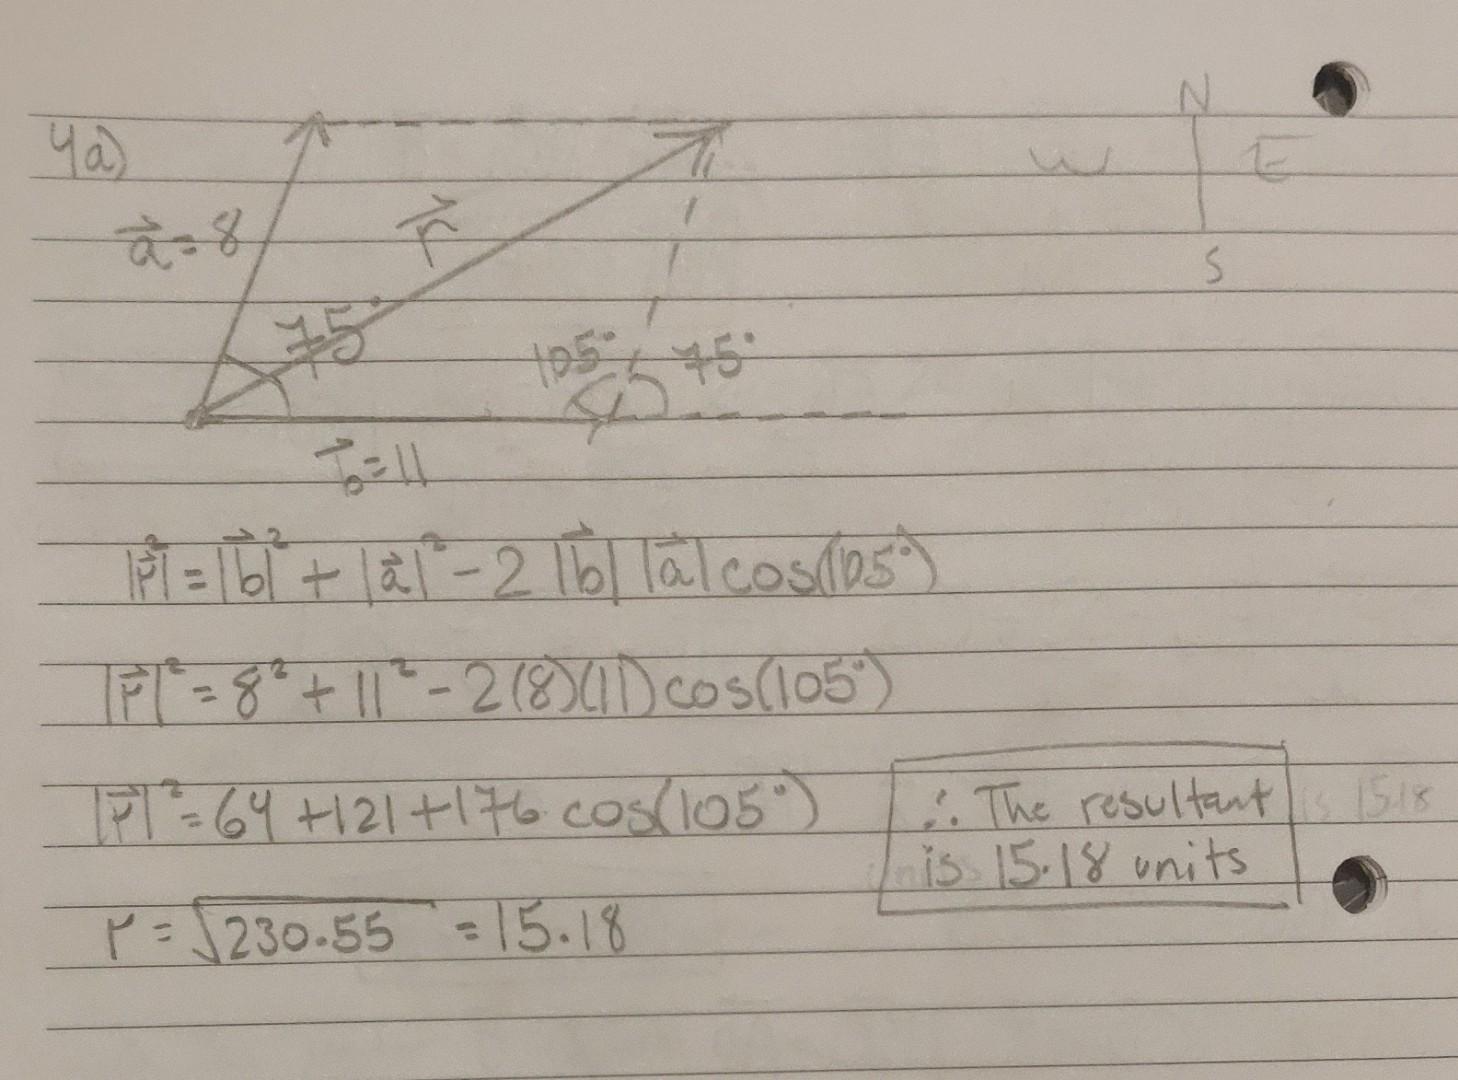 4a)
N
W E
S
a⃗ = 8
r⃗
75°
105° 75°
b⃗ = 11
|r⃗|² = |b⃗|² + |a⃗|² - 2 |b⃗| |a⃗| cos(105°)
|r⃗|² = 8² + 11² - 2(8)(11) cos(105°)
|r⃗|² = 64 + 121 + 176 cos(105°)
r = √230.55 = 15.18
∴ The resultant
is 15.18 units
is 15.18